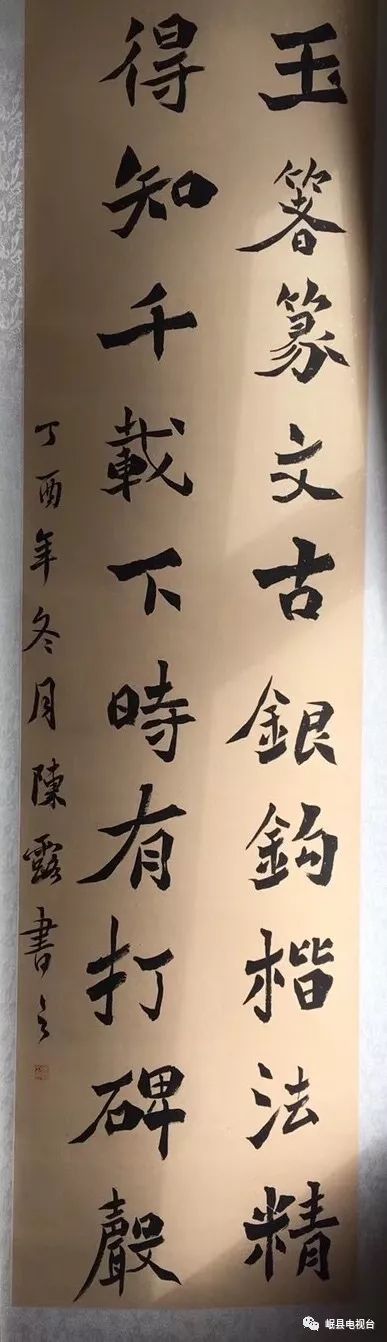 玉箸篆文古銀鈎楷法精
得知千載下時有打碑聲
丁酉年冬月陳露書之
岷县电视台